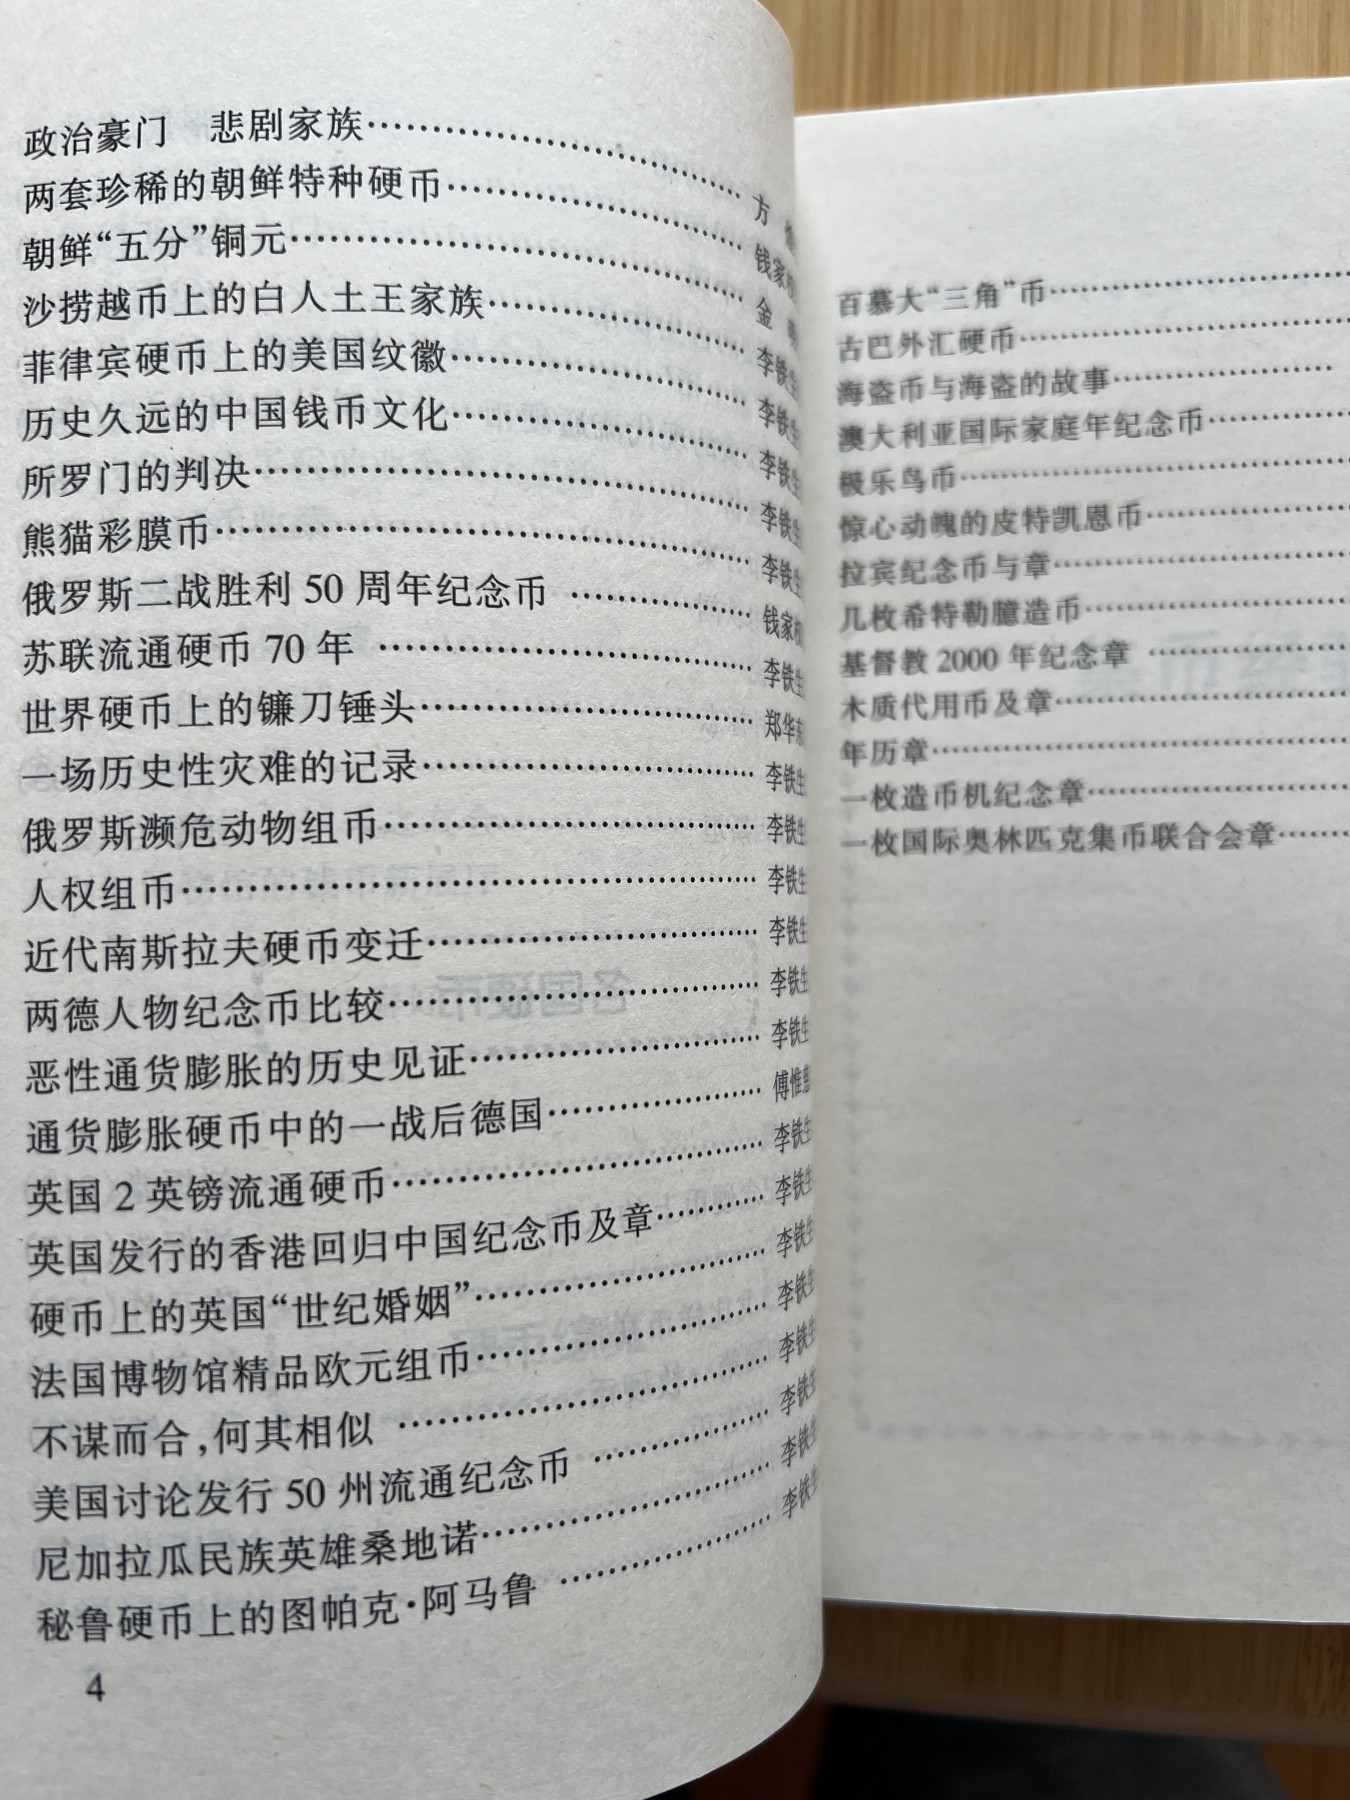 政治豪门 悲剧家族…………方
两套珍稀的朝鲜特种硬币…………钱家权
朝鲜“五分”铜元…………金
沙捞越币上的白人土王家族…………李铁生
菲律宾硬币上的美国纹徽…………李铁生
历史久远的中国钱币文化…………李铁生
所罗门的判决…………李铁生
熊猫彩膜币…………李铁生
俄罗斯二战胜利 50 周年纪念币…………钱家权
苏联流通硬币 70 年…………李铁生
世界硬币上的镰刀锤头…………郑华
一场历史性灾难的记录…………李铁生
俄罗斯濒危动物组币…………李铁生
人权组币…………李铁生
近代南斯拉夫硬币变迁…………李铁生
两德人物纪念币比较…………李铁生
恶性通货膨胀的历史见证…………李铁生
通货膨胀硬币中的一战后德国…………傅惟惠
英国 2 英镑流通硬币…………李铁生
英国发行的香港回归中国纪念币及章…………李铁生
硬币上的英国“世纪婚姻”…………李铁生
法国博物馆精品欧元组币…………李铁生
不谋而合,何其相似…………李铁生
美国讨论发行 50 州流通纪念币…………李铁生
尼加拉瓜民族英雄桑地诺…………李铁生
秘鲁硬币上的图帕克·阿马鲁…………李铁生
4
百慕大“三角”币…………
古巴外汇硬币…………
海盗币与海盗的故事…………
澳大利亚国际家庭年纪念币…………
极乐鸟币…………
惊心动魄的皮特凯恩币…………
拉宾纪念币与章…………
几枚希特勒臆造币…………
基督教 2000 年纪念章…………
木质代用币及章…………
年历章…………
一枚造币机纪念章…………
一枚国际奥林匹克集币联合会章…………